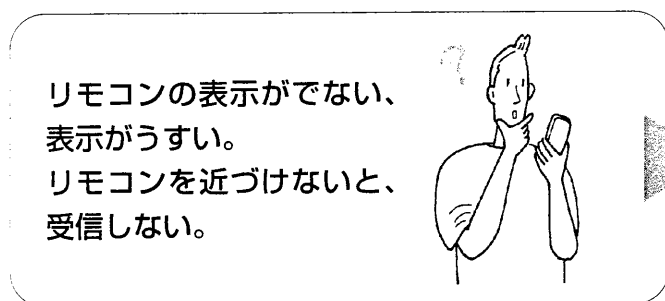 リモコンの表示がでない、
表示がうすい。
リモコンを近づけないと、
受信しない。